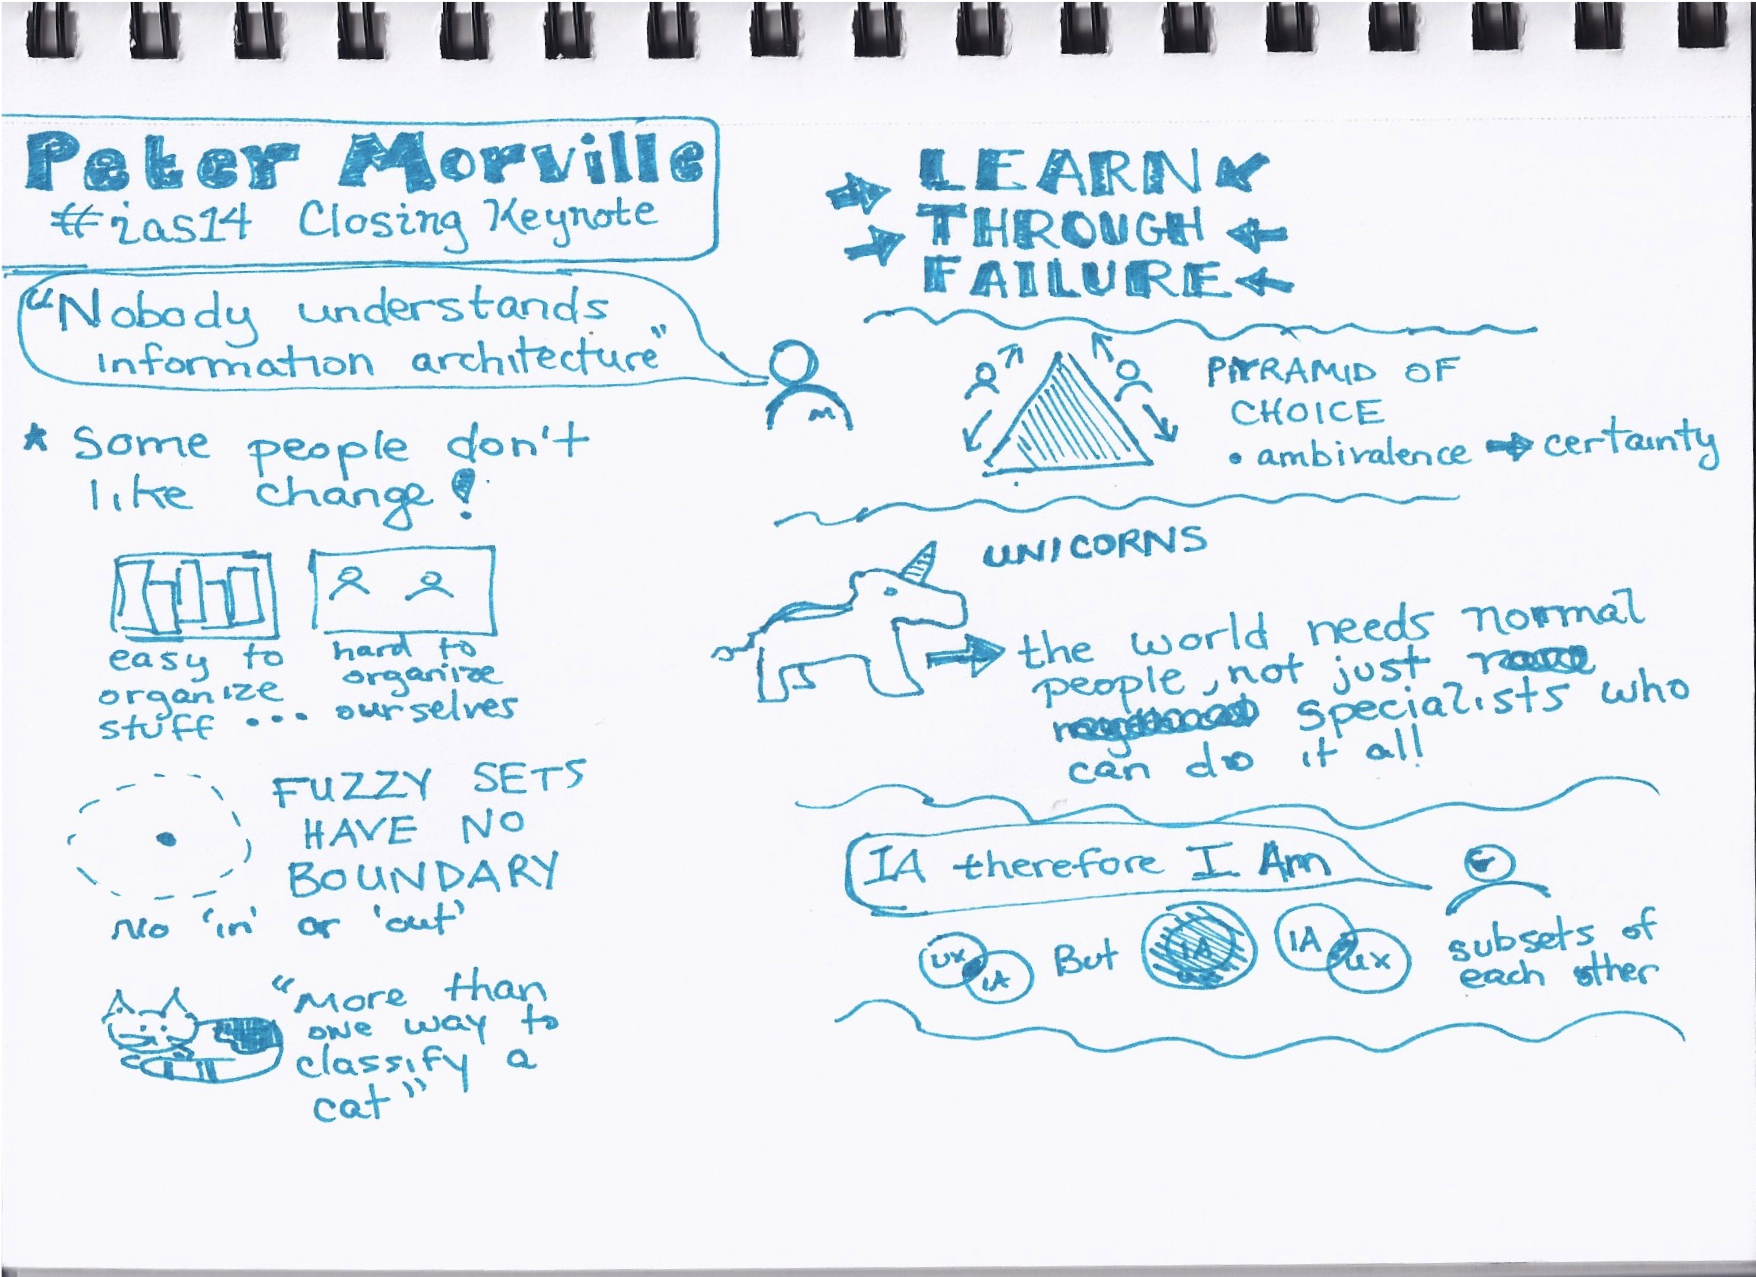 Peter Morville
#ias14 Closing Keynote
"Nobody understands
information architecture"
M
* Some people don't
like change!
easy to
organize
stuff ...
hard to
organize
ourselves
FUZZY SETS
HAVE NO
BOUNDARY
No 'in' or 'out'
"More than
one way to
classify a
cat"
LEARN
THROUGH
FAILURE
PYRAMID OF
CHOICE
• ambivalence → certainty
UNICORNS
the world needs normal
people, not just
specialists who
can do it all!
IA therefore I Am
UX IA But IA IA UX
subsets of
each other